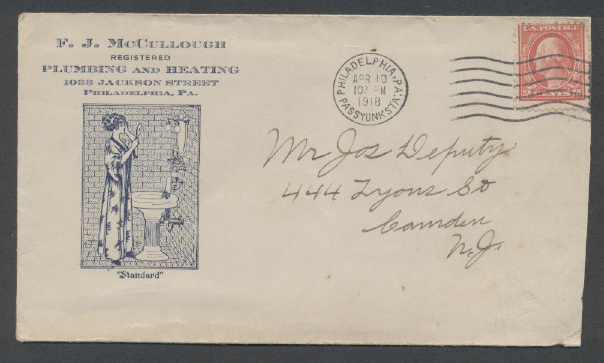 F. J. McCullough
REGISTERED
PLUMBING AND HEATING
1033 JACKSON STREET
PHILADELPHIA, PA.
"Standard"
PHILADELPHIA, PA.
APR 10
1918
PASSYUNK STA.
U.S. POSTAGE
CENTS
Mr Jos Deputy
444 Lyons St
Camden
N.J.